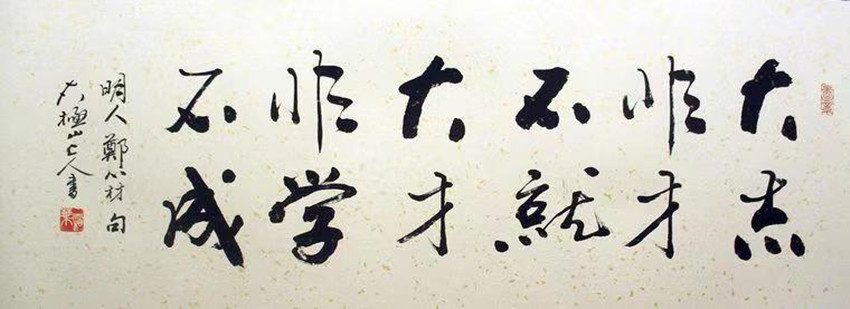 大志
非才
不就
大才
非学
不成
明人鄭心材句
極山人書